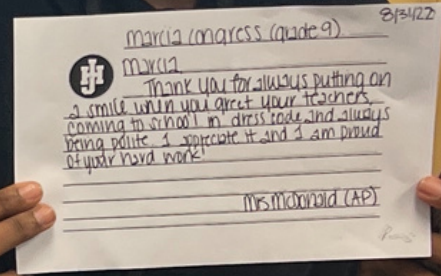 8/31/22
Marcia Congress (Grade 9)
HJ
Marcia
Thank you for always putting on
a smile when you greet your teachers,
coming to school in dress code, and always
being polite. I appreciate it and I am proud
of your hard work!
Mrs. McDonald (AP)